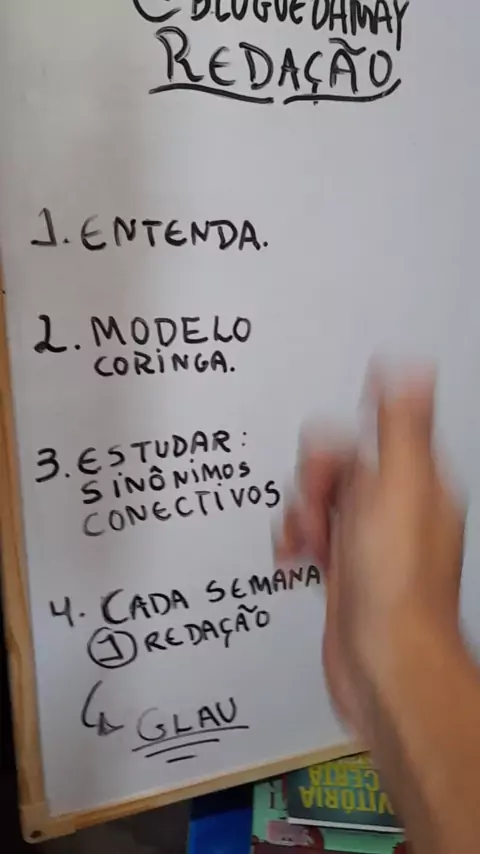 @BLOGUEDAMAY
REDAÇÃO
1. ENTENDA.
2. MODELO
CORINGA.
3. ESTUDAR:
SINÔNIMOS
CONECTIVOS
4. CADA SEMANA
1 REDAÇÃO
GLAU
VITÓRIA
CERTA